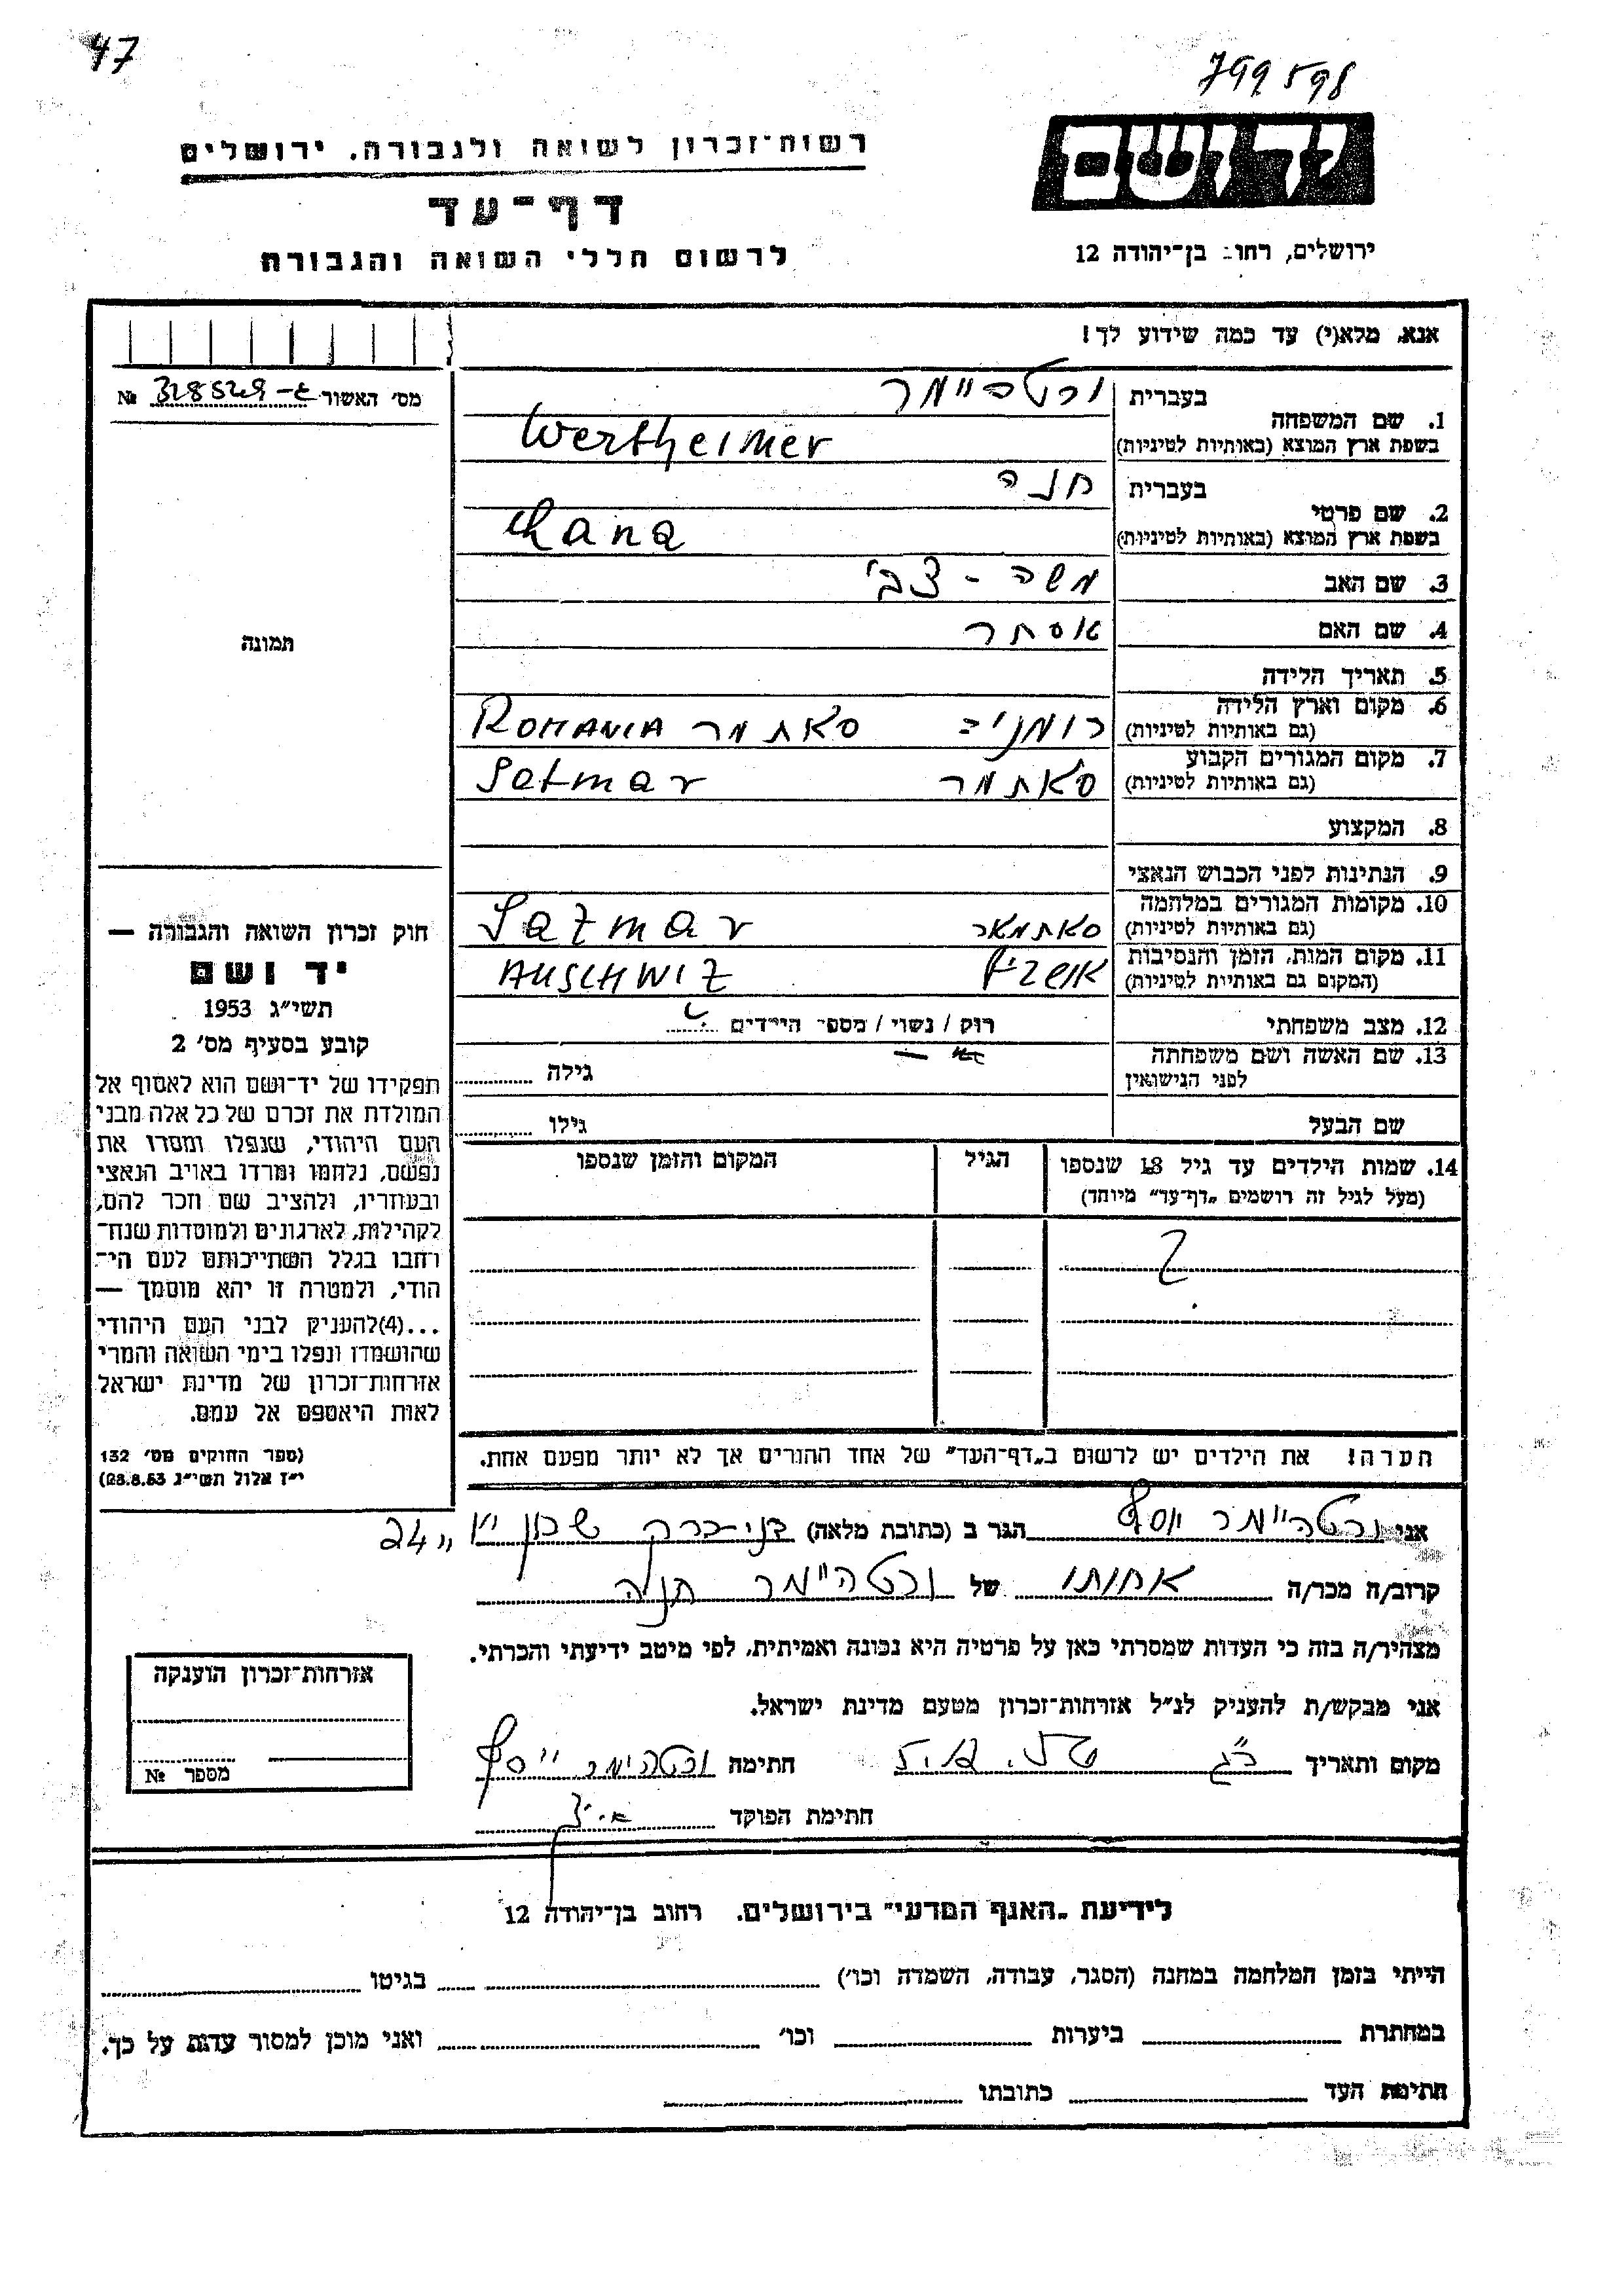 47
799598
יד ושם
ירושלים, רחוב בן־יהודה 12
רשות־זכרון לשואה ולגבורה. ירושלים
דף־עד
לרשום חללי השואה והגבורה
אנא, מלא(י) עד כמה שידוע לך!
מס׳ האשור 328529 №
1. שם המשפחה
בעברית
ורטהיימר
בשפת ארץ המוצא (באותיות לטיניות)
Wertheimer
2. שם פרטי
בעברית
חנה
בשפת ארץ המוצא (באותיות לטיניות)
Chana
3. שם האב משה - צבי
4. שם האם אסתר
5. תאריך הלידה
6. מקום וארץ הלידה
(גם באותיות לטיניות)
רומניה סאתמר ROMANIA
7. מקום המגורים הקבוע
(גם באותיות לטיניות)
סאתמר Satmar
8. המקצוע
9. הנתינות לפני הכבוש הנאצי
10. מקומות המגורים במלחמה
(גם באותיות לטיניות)
סאתמאר Satmar
11. מקום המות, הזמן והנסיבות
(המקום גם באותיות לטיניות)
אושביץ AUSCHWIZ
12. מצב משפחתי רוק / נשוי / מספר הילדים
13. שם האשה ושם משפחתה
לפני הנישואין
גילה
שם הבעל גילו
14. שמות הילדים עד גיל 18 שנספו
(מעל לגיל זה רושמים „דף־עד״ מיוחד)
הגיל
המקום והזמן שנספו
?
הערה! את הילדים יש לרשום ב„דף־העד״ של אחד ההורים אך לא יותר מפעם אחת.
תמונה
חוק זכרון השואה והגבורה —
יד ושם
תשי״ג 1953
קובע בסעיף מס׳ 2
תפקידו של יד־ושם הוא לאסוף אל
המולדת את זכרם של כל אלה מבני
העם היהודי, שנפלו ומסרו את
נפשם, נלחמו ומרדו באויב הנאצי
ובעוזריו, ולהציב שם וזכר להם,
לקהילות, לארגונים ולמוסדות שנח־
רחבו בגלל השתייכותם לעם הי־
הודי, ולמטרה זו יהא מוסמך —
...(4)להעניק לבני העם היהודי
שהושמדו ונפלו בימי השואה והמרי
אזרחות־זכרון של מדינת ישראל
לאות היאספם אל עמם.
(ספר החוקים מס׳ 132
י״ז אלול תשי״ג 28.8.53)
אני ורטהיימר יוסף הגר ב (כתובת מלאה) בני-ברק שכון 24
קרוב/ה מכר/ה אחותו של ורטהיימר חנה
מצהיר/ה בזה כי העדות שמסרתי כאן על פרטיה היא נכונה ואמיתית, לפי מיטב ידיעתי והכרתי.
אני מבקש/ת להעניק לנ״ל אזרחות־זכרון מטעם מדינת ישראל.
מקום ותאריך חתימה ורטהימר יוסף
חתימת הפוקד
אזרחות־זכרון הוענקה
מספר №
לידיעת „האגף המדעי״ בירושלים. רחוב בן־יהודה 12
הייתי בזמן המלחמה במחנה (הסגר, עבודה, השמדה וכו׳) בגיטו
במחתרת ביערות וכו׳ ואני מוכן למסור עדות על כך.
חתימת העד כתובתו